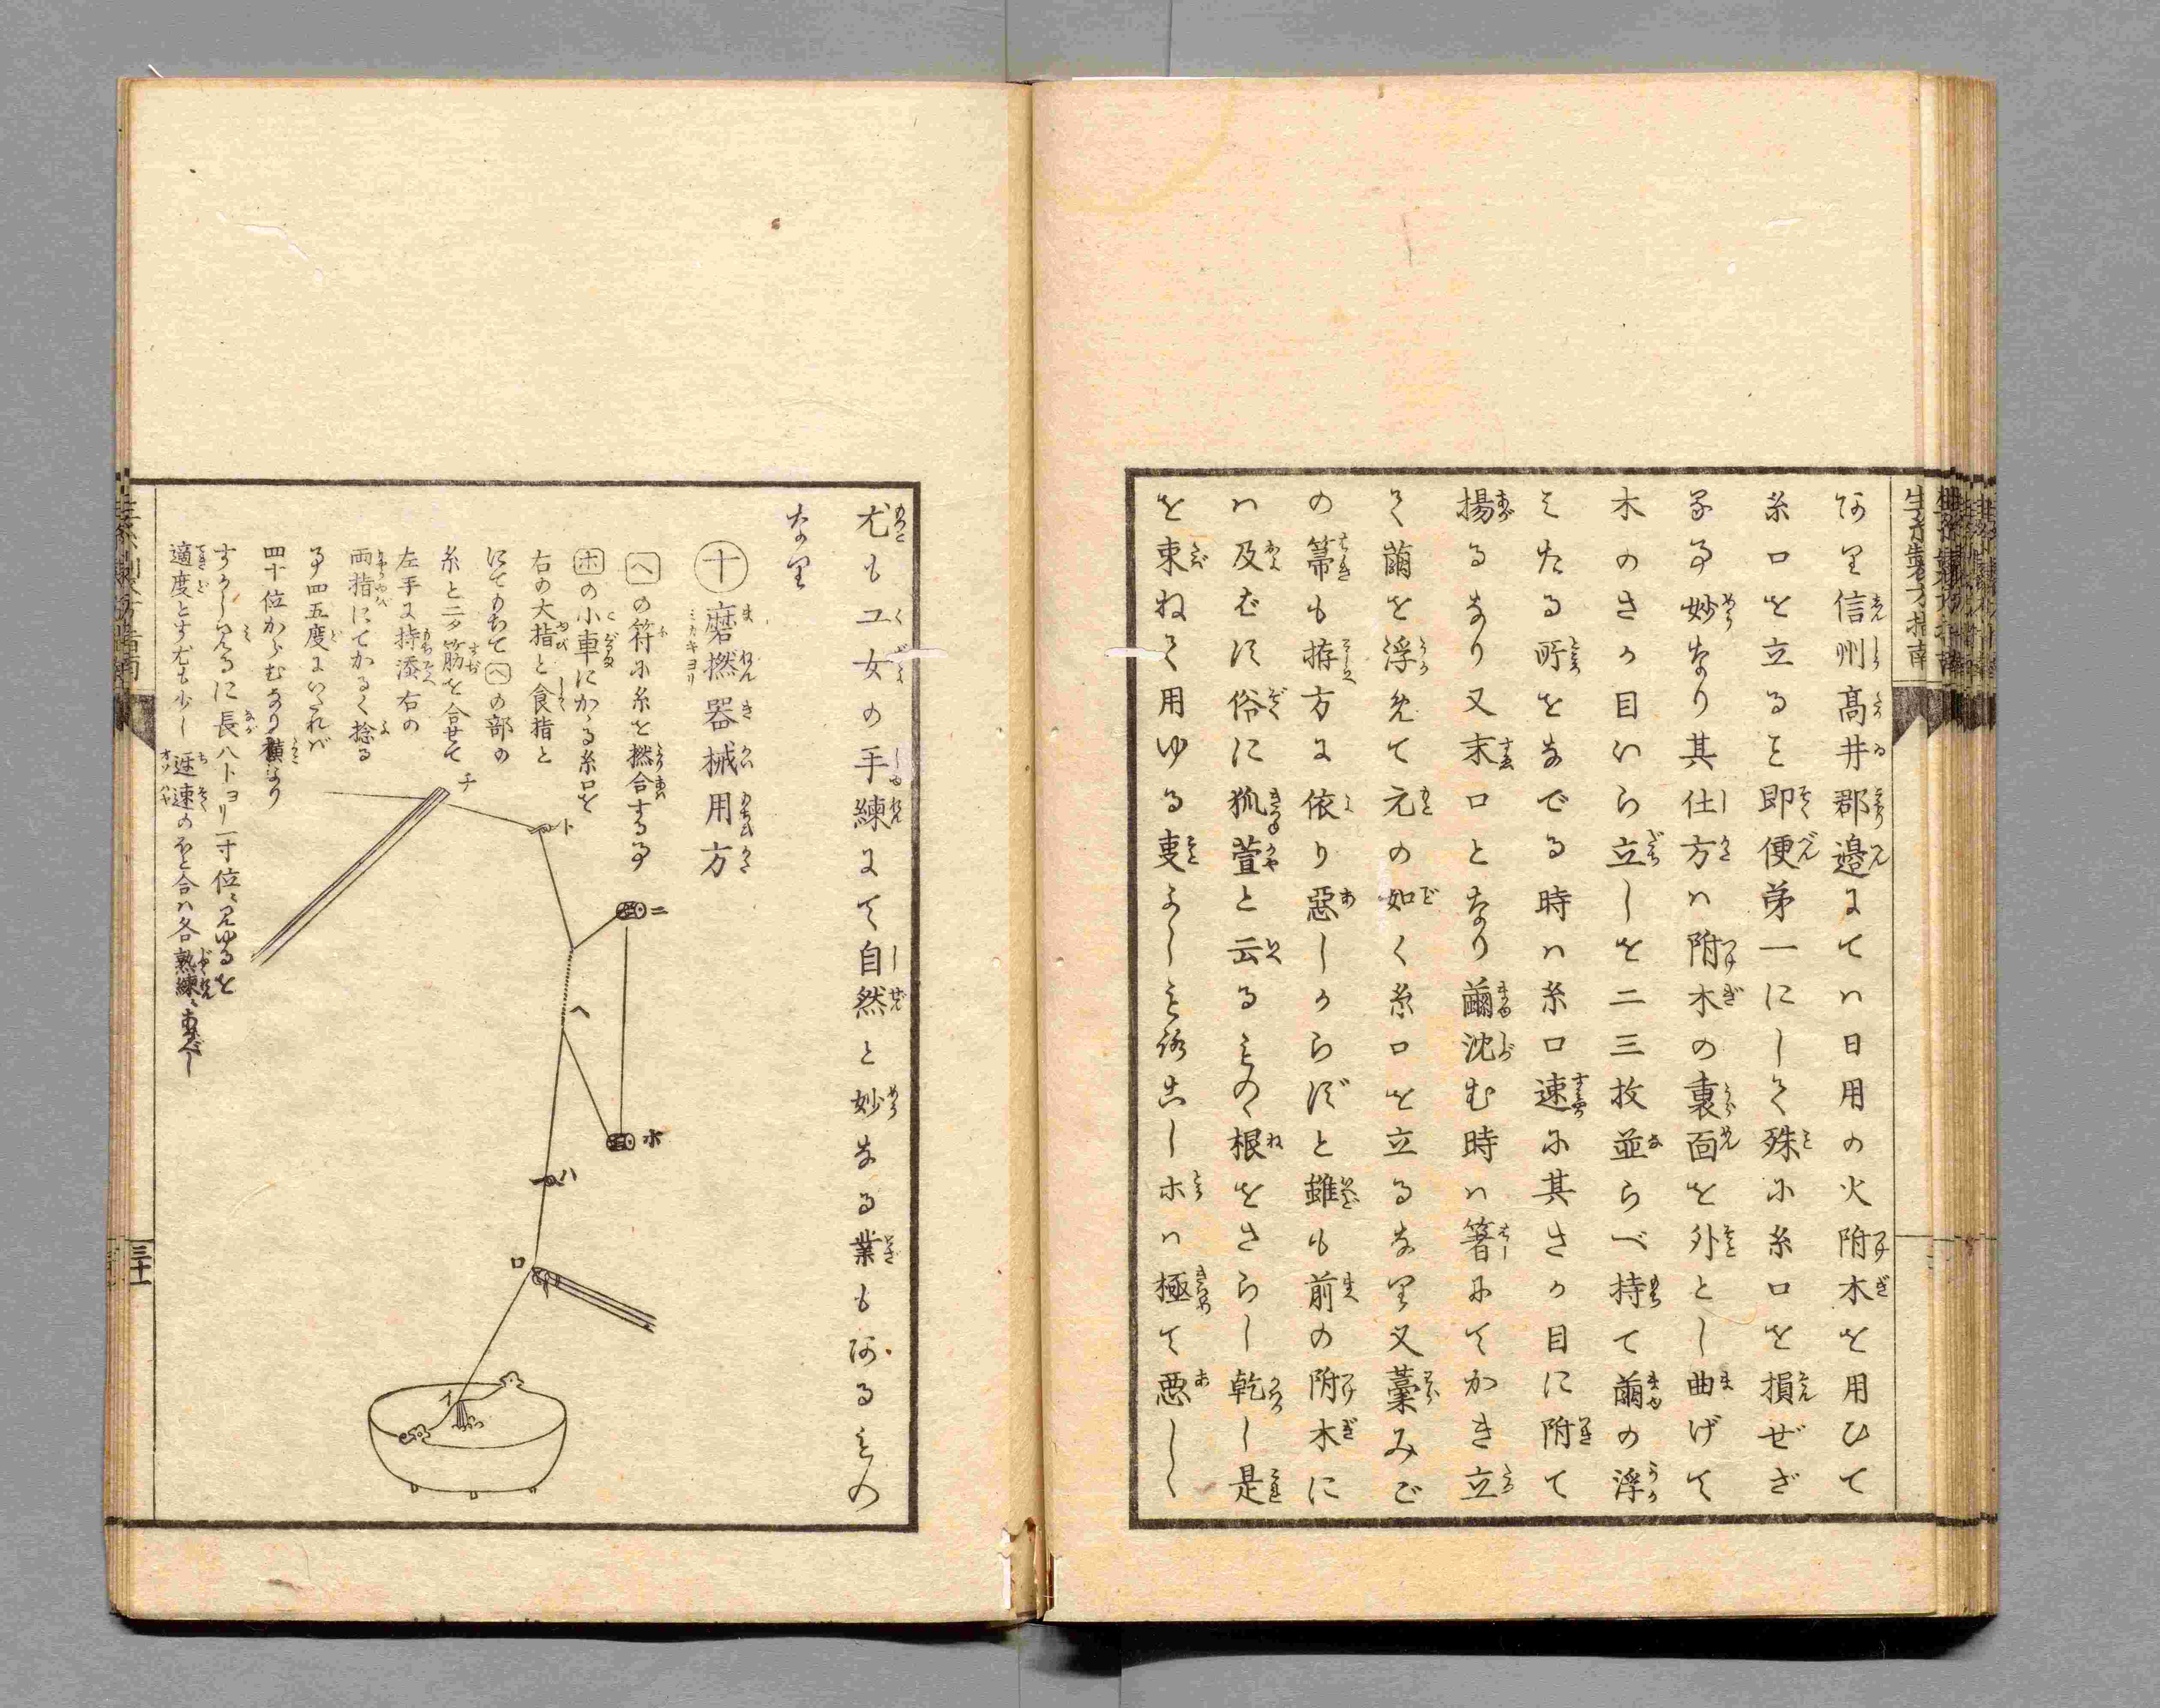 生糸製方指南
阿里信州高井郡邉まてハ日用の火附木を用ひて
糸口を立ると即便第一にして殊に糸口を損ぜざ
る事妙なり其仕方ハ附木の裏面を外とし曲げて
木のさゝ目いら立しを二三枚並らべ持て繭の浮
みたる所をなでる時ハ糸口速に其さゝ目に附て
揚るなり又末口となり繭沈む時ハ箸にてかき立
て繭を浮免て元の如く糸口を立るな里又藁みご
の箒も拵方に依り惡しからずと雖も前の附木に
ハ及ばず俗に狐萱と云るものゝ根をさらし乾し是
を束ねて用ゆる叓よし
ホハ極て悪し
尤も工女の手練まて自然と妙なる業も阿るもの
な里
十 磨撚器械用方
ミカキヨリ
ヘの符に糸を撚合する事
ホの小車にかゝる糸口を
右の大指と食指と
にてもちてヘの部の
糸と二タ筋を合せて
左手に持添右の
両指にてかるく捻る
事四五度にいたれバ
四十位からむなり横より
するに長八トヨリ一寸位
適度とす尤も少し遅速のほど合ハ各熟練
チ
ト
ニ
ヘ
ホ
ハ
ロ
イ
生糸製方指南
三十